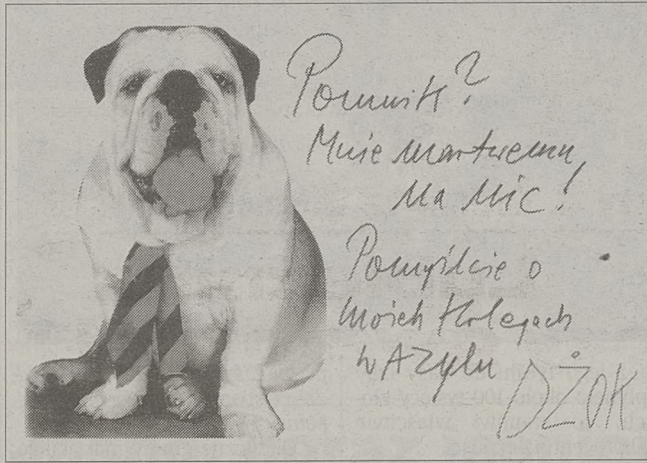 Pomnik?
Mnie martwemu,
na nic!
Pomyślcie o
moich kolegach
w Azylu
DŻOK